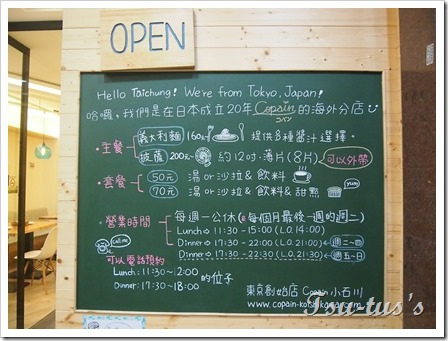 OPEN
Hello Taichung! We're from Tokyo, Japan!
哈囉。我們是在日本成立20年 Copain 的海外分店
・主餐 義大利麵 160元~ 提供多種醬汁選擇。
披薩 200元~ 約12吋・薄片(8片) 可以外帶
・套餐 50元 湯 or 沙拉 & 飲料
70元 湯 or 沙拉 & 飲料 & 甜點 yum
・營業時間 每週一公休 (&每個月最後一週的週二)
Lunch → 11:30 - 15:00 (L.O.14:00)
call me Dinner → 17:30 - 22:00 (L.O.21:00) 週二~四
Dinner → 17:30 - 22:30 (L.O.21:30) 週五~日
可以電話預約
Lunch: 11:30~12:00 的位子
Dinner: 17:30~18:00
東京創始店 Copain 小石川
www.copain-koishikawa.com
Tsu-tus's